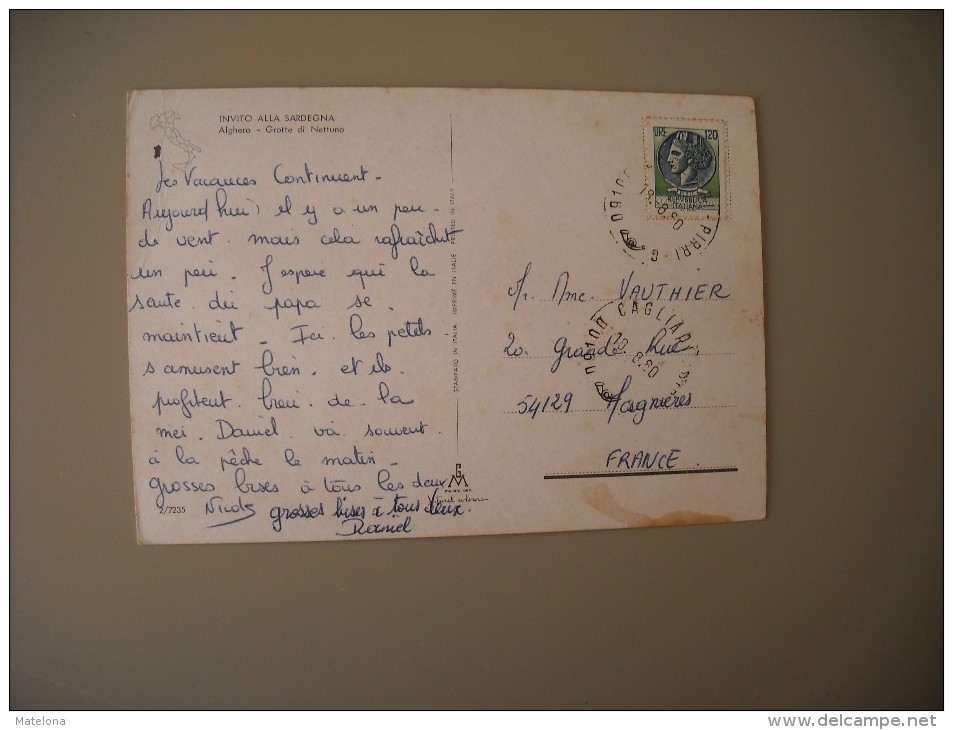 INVITO ALLA SARDEGNA
Alghero - Grotte di Nettuno
Les Vacances Continuent -
Aujourd'hui il y a un peu
de vent. mais cela rafraîchit
un peu. J'espere que la
sante du papa se
maintient - Ici les petits
s'amusent bien. et ils
profitent bien de la
mer. Daniel va souvent
à la pêche le matin -
grosses bises à tous les deux
Nicole
grosses bises à tous deux.
Daniel
2/7235
STAMPATO IN ITALIA IMPRIMÉ EN ITALIE PRINTED IN ITALY
LIRE 120
REPVBBLICA
ITALIANA
09100
PIRRI
19.8.80
Mr. Mme. VAUTHIER
20 Grande Rue
54129 Magnieres
FRANCE.
09100 CAGLIARI
20.8.80
Matelona
www.delcampe.net